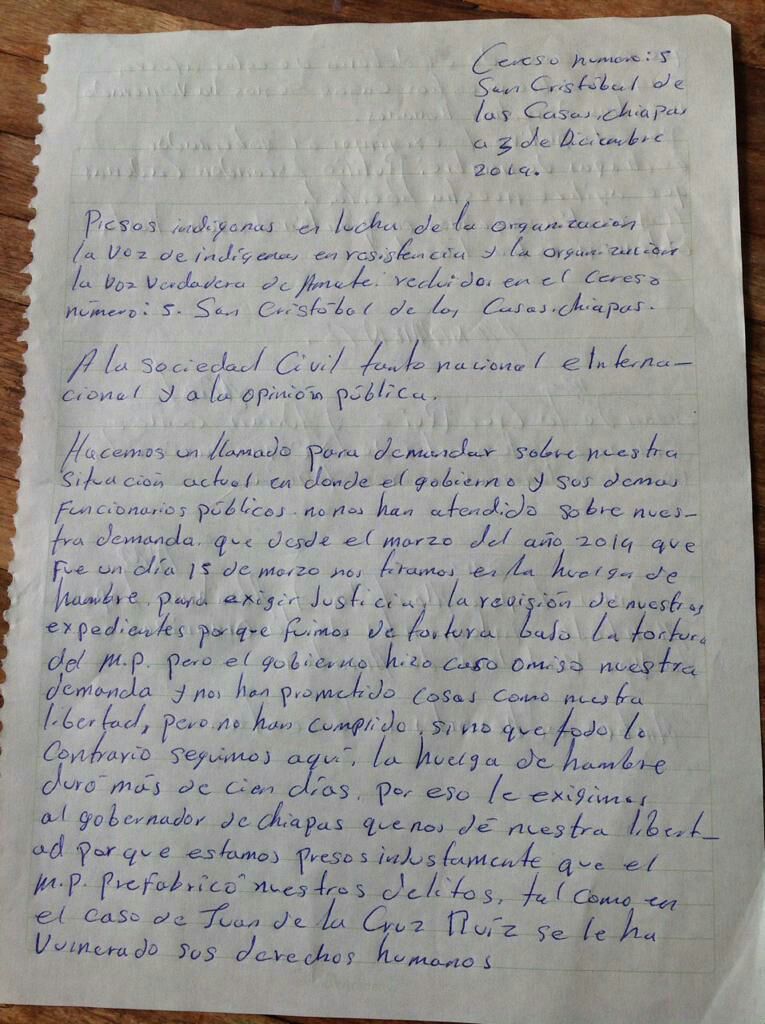 Cereso número: 5
San Cristóbal de
las Casas, chiapas
a 3 de Diciembre
2019.
Presos indígenas en lucha de la organización
la voz de indígenas en resistencia y la organización
la voz verdadera de Amate. recluidos en el cereso
número: 5. San Cristóbal de las Casas. chiapas.
A la sociedad Civil tanto nacional e Interna-
cional y a la opinión pública.
Hacemos un llamado para demandar sobre nuestra
situación actual en donde el gobierno y sus demas
Funcionarios públicos. no nos han atendido sobre nues-
tra demanda. que desde el marzo del año 2019 que
Fue un día 15 de marzo nos tiramos en la huelga de
hambre para exigir Justicia, la revisión de nuestros
expedientes porque fuimos de tortura bajo la tortura
del M.P. pero el gobierno hizo caso omiso nuestra
demanda y nos han prometido cosas como nuestra
libertad, pero no han cumplido, sino que todo lo
contrario seguimos aquí, la huelga de hambre
duró más de cien días, por eso le exigimos
al gobernador de chiapas que nos dé nuestra libert-
ad porque estamos presos injustamente que el
M.P. prefabricó nuestros delitos, tal como en
el caso de Juan de la Cruz Ruíz se le ha
vulnerado sus derechos humanos